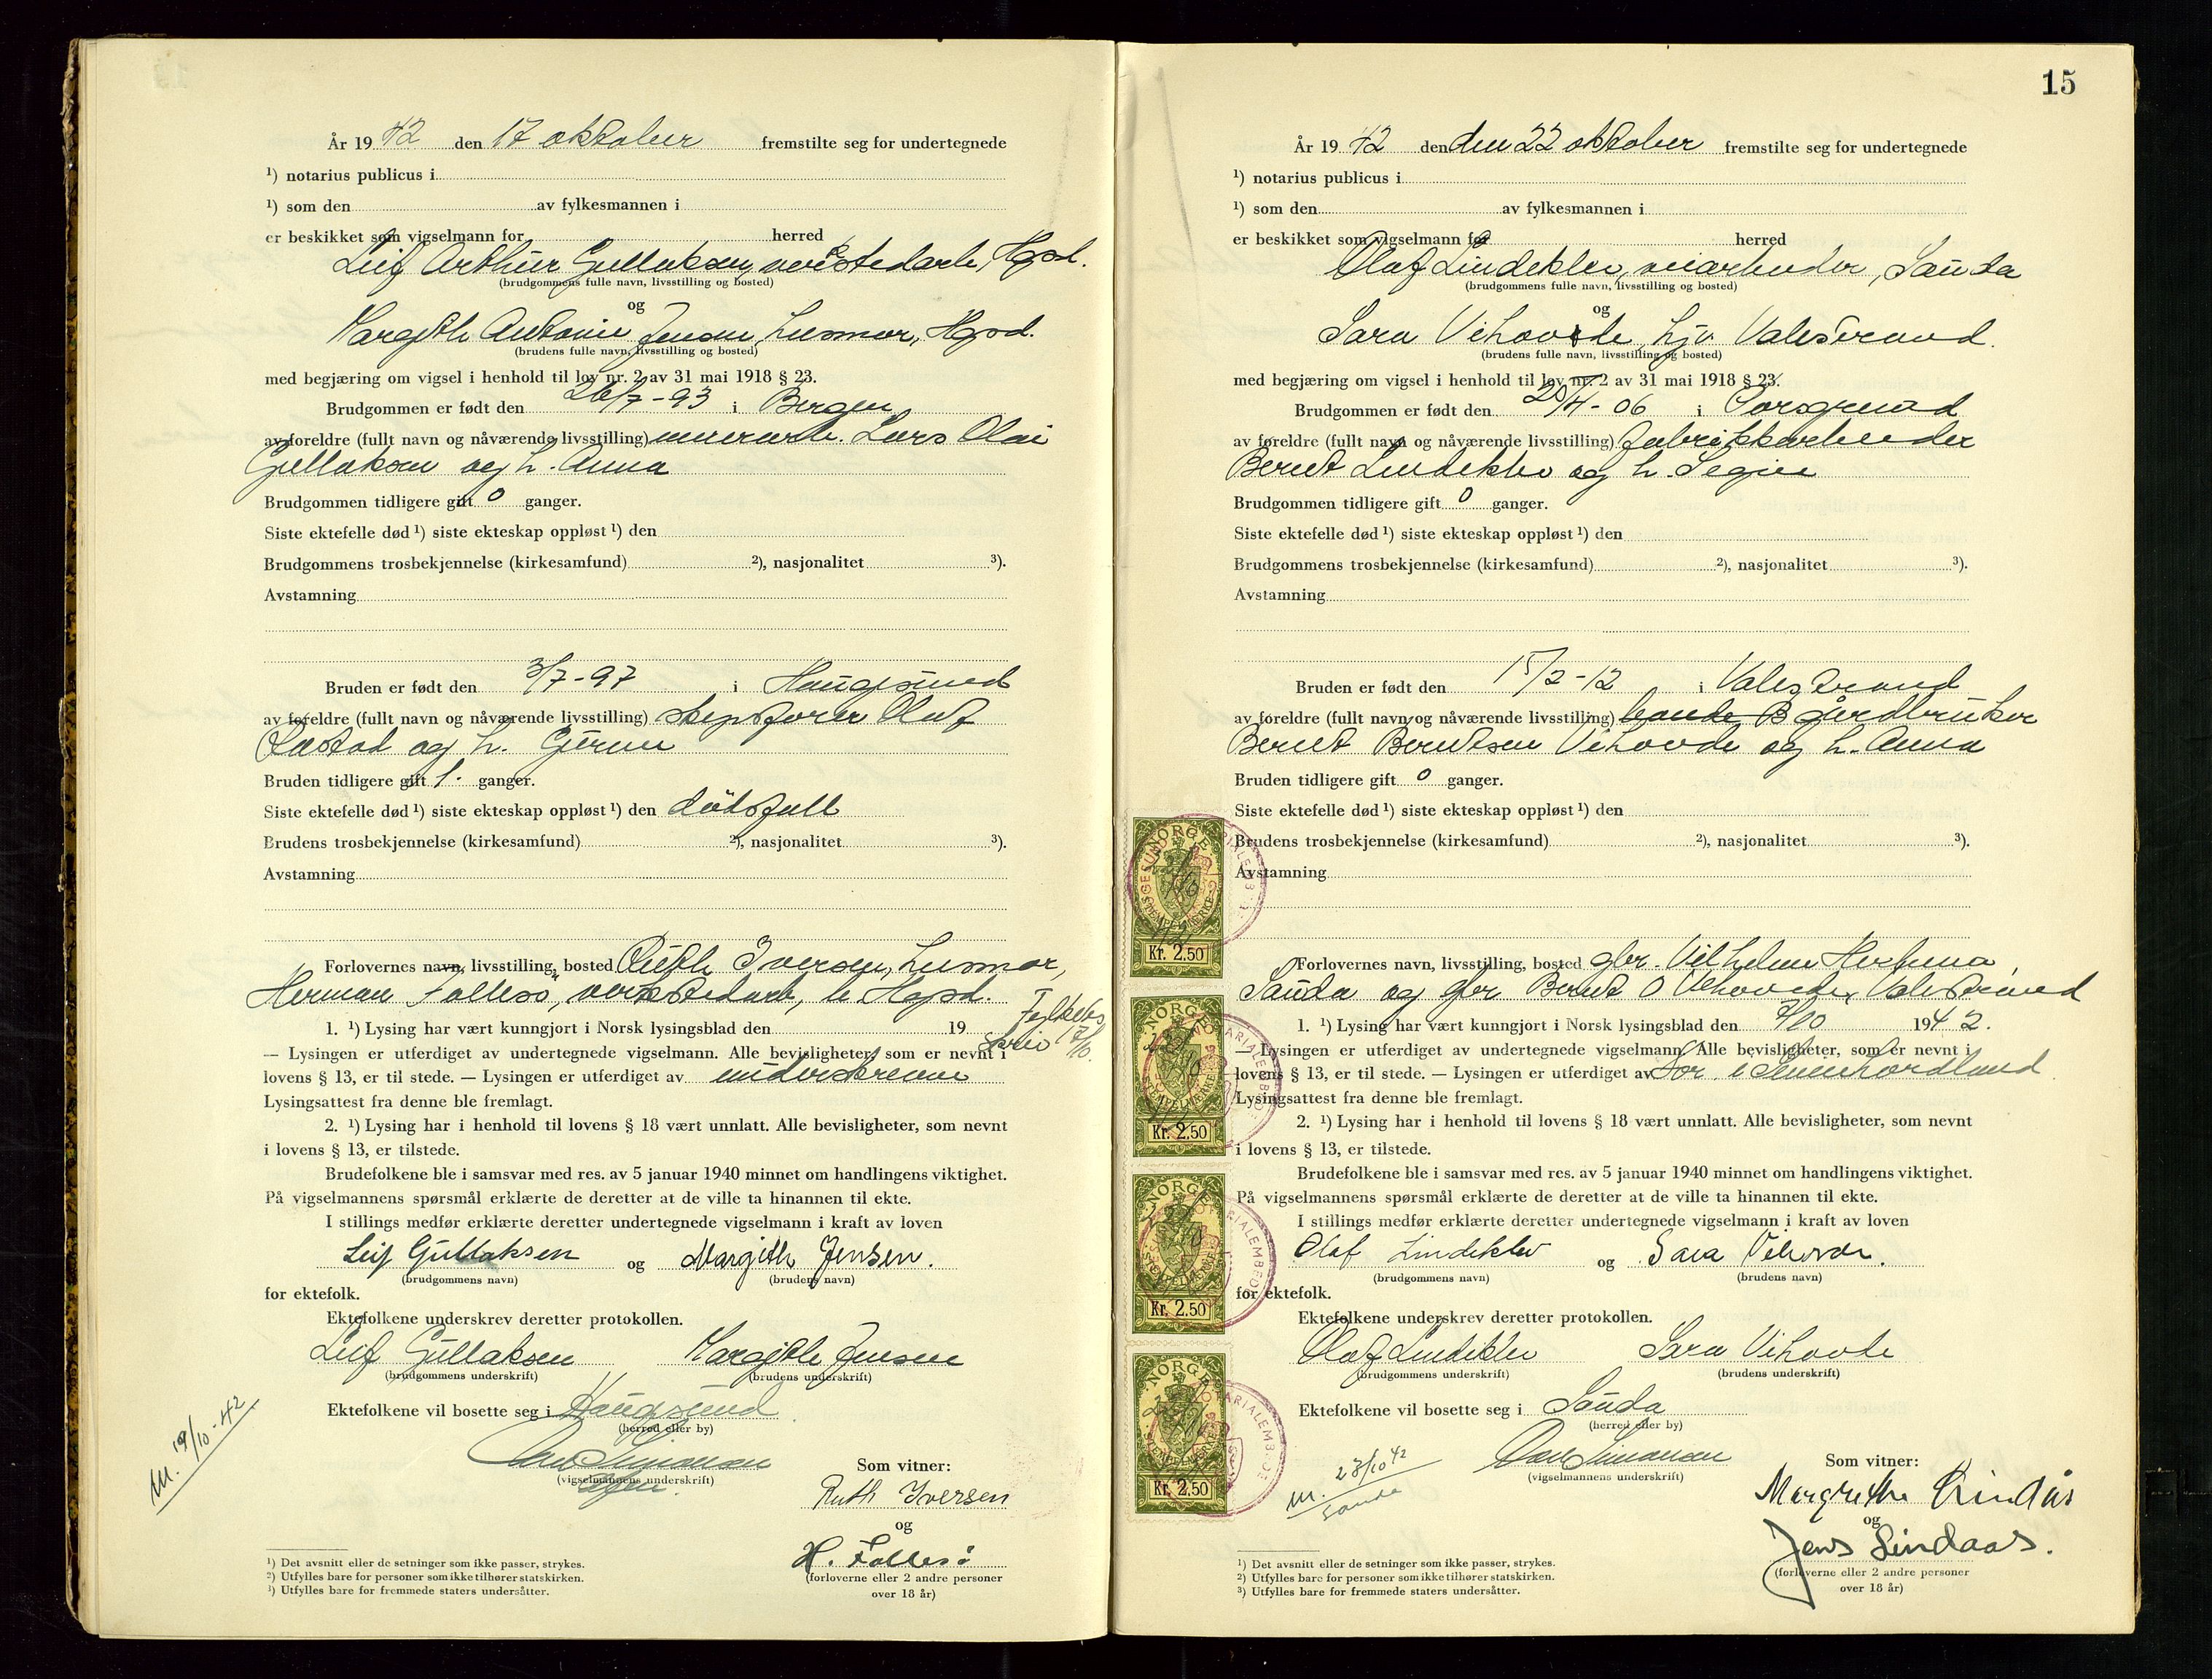 År 19 42 den 17 oktober fremstilte seg for undertegnede
¹) notarius publicus i
¹) som den av fylkesmannen i
er beskikket som vigselmann for herred
Leif Arthur Gullaksen, verkstedarb, Hgsd.
(brudgommens fulle navn, livsstilling og bosted)
og
Margith Antonie Jensen, husmor, Hgsd.
(brudens fulle navn, livsstilling og bosted)
med begjæring om vigsel i henhold til lov nr. 2 av 31 mai 1918 § 23.
Brudgommen er født den 26/7-93 i Bergen
av foreldre (fullt navn og nåværende livsstilling) murerarb. Lars Olai
Gullaksen og h. Anna
Brudgommen tidligere gift 0 ganger.
Siste ektefelle død ¹) siste ekteskap oppløst ¹) den
Brudgommens trosbekjennelse (kirkesamfund) ²), nasjonalitet ³).
Avstamning
Bruden er født den 3/7-97 i Haugesund
av foreldre (fullt navn og nåværende livsstilling) skipsfører Olaf
og h. Gurine
Bruden tidligere gift 1. ganger.
Siste ektefelle død ¹) siste ekteskap oppløst ¹) den dødsfall
Brudens trosbekjennelse (kirkesamfund) ²), nasjonalitet ³).
Avstamning
Forlovernes navn, livsstilling, bosted Ruth Iversen, husmor,
Herman Follesø, verkstedarb, b. Hgsd.
1. ¹) Lysing har vært kunngjort i Norsk lysingsblad den 19
Fylkets
skriv 17/10.
— Lysingen er utferdiget av undertegnede vigselmann. Alle bevisligheter, som er nevnt i
lovens § 13, er til stede. — Lysingen er utferdiget av underskrevne
Lysingsattest fra denne ble fremlagt.
2. ¹) Lysing har i henhold til lovens § 18 vært unnlatt. Alle bevisligheter, som nevnt
i lovens § 13, er tilstede.
Brudefolkene ble i samsvar med res. av 5 januar 1940 minnet om handlingens viktighet.
På vigselmannens spørsmål erklærte de deretter at de ville ta hinannen til ekte.
I stillings medfør erklærte deretter undertegnede vigselmann i kraft av loven
Leif Gullaksen og Margith Jensen.
(brudgommens navn) (brudens navn)
for ektefolk.
Ektefolkene underskrev deretter protokollen.
Leif Gullaksen Margithe Jensen
(brudgommens underskrift) (brudens underskrift)
Ektefolkene vil bosette seg i Haugesund
(herred eller by)
M. 19/10-42
Carl Simonsen
(vigselmannens underskrift)
Som vitner:
Ruth Iversen
og
H. Follesø
(forloverne eller 2 andre personer
over 18 år)
¹) Det avsnitt eller de setninger som ikke passer, strykes.
²) Utfylles bare for personer som ikke tilhører statskirken.
³) Utfylles bare for fremmede staters undersåtter.
15
År 19 42 den den 22 oktober fremstilte seg for undertegnede
¹) notarius publicus i
¹) som den av fylkesmannen i
er beskikket som vigselmann for herred
Olaf Lindeklev, veiarbeider, Sauda
(brudgommens fulle navn, livsstilling og bosted)
og
Sara Vihovde, hjv. Valestrand.
(brudens fulle navn, livsstilling og bosted)
med begjæring om vigsel i henhold til lov nr. 2 av 31 mai 1918 § 23.
Brudgommen er født den 25/4-06 i Porsgrund
av foreldre (fullt navn og nåværende livsstilling) fabrikkarbeider
Berndt Lindeklev og h. Segine
Brudgommen tidligere gift 0 ganger.
Siste ektefelle død ¹) siste ekteskap oppløst ¹) den
Brudgommens trosbekjennelse (kirkesamfund) ²), nasjonalitet ³).
Avstamning
Bruden er født den 15/2-12 i Valestrand
av foreldre (fullt navn og nåværende livsstilling) gårdbruker
Berndt Berndtsen Vihovde og h. Anna
Bruden tidligere gift 0 ganger.
Siste ektefelle død ¹) siste ekteskap oppløst ¹) den
Brudens trosbekjennelse (kirkesamfund) ²), nasjonalitet ³).
Avstamning
Forlovernes navn, livsstilling, bosted gbr. Vilhelm
Sauda og gbr Berndt O Vihovde, Valestrand
1. ¹) Lysing har vært kunngjort i Norsk lysingsblad den 7/10 1942.
— Lysingen er utferdiget av undertegnede vigselmann. Alle bevisligheter, som er nevnt i
lovens § 13, er til stede. — Lysingen er utferdiget av Sor. i Sunnhordland
Lysingsattest fra denne ble fremlagt.
2. ¹) Lysing har i henhold til lovens § 18 vært unnlatt. Alle bevisligheter, som nevnt
i lovens § 13, er tilstede.
Brudefolkene ble i samsvar med res. av 5 januar 1940 minnet om handlingens viktighet.
På vigselmannens spørsmål erklærte de deretter at de ville ta hinannen til ekte.
I stillings medfør erklærte deretter undertegnede vigselmann i kraft av loven
Olaf Lindeklev og Sara Vihovde.
(brudgommens navn) (brudens navn)
for ektefolk.
Ektefolkene underskrev deretter protokollen.
Olaf Lindeklev Sara Vihovde
(brudgommens underskrift) (brudens underskrift)
Ektefolkene vil bosette seg i Sauda
(herred eller by)
M. 23/10 42
Sauda
Carl Simonsen
(vigselmannens underskrift)
Som vitner:
Margrethe Lindås
og
Jens Lindaas.
(forloverne eller 2 andre personer
over 18 år)
¹) Det avsnitt eller de setninger som ikke passer, strykes.
²) Utfylles bare for personer som ikke tilhører statskirken.
³) Utfylles bare for fremmede staters undersåtter.
NORGE
STEMPELMERKE
Kr. 2.50
NORGE
STEMPELMERKE
Kr. 2.50
NORGE
STEMPELMERKE
Kr. 2.50
NORGE
STEMPELMERKE
Kr. 2.50